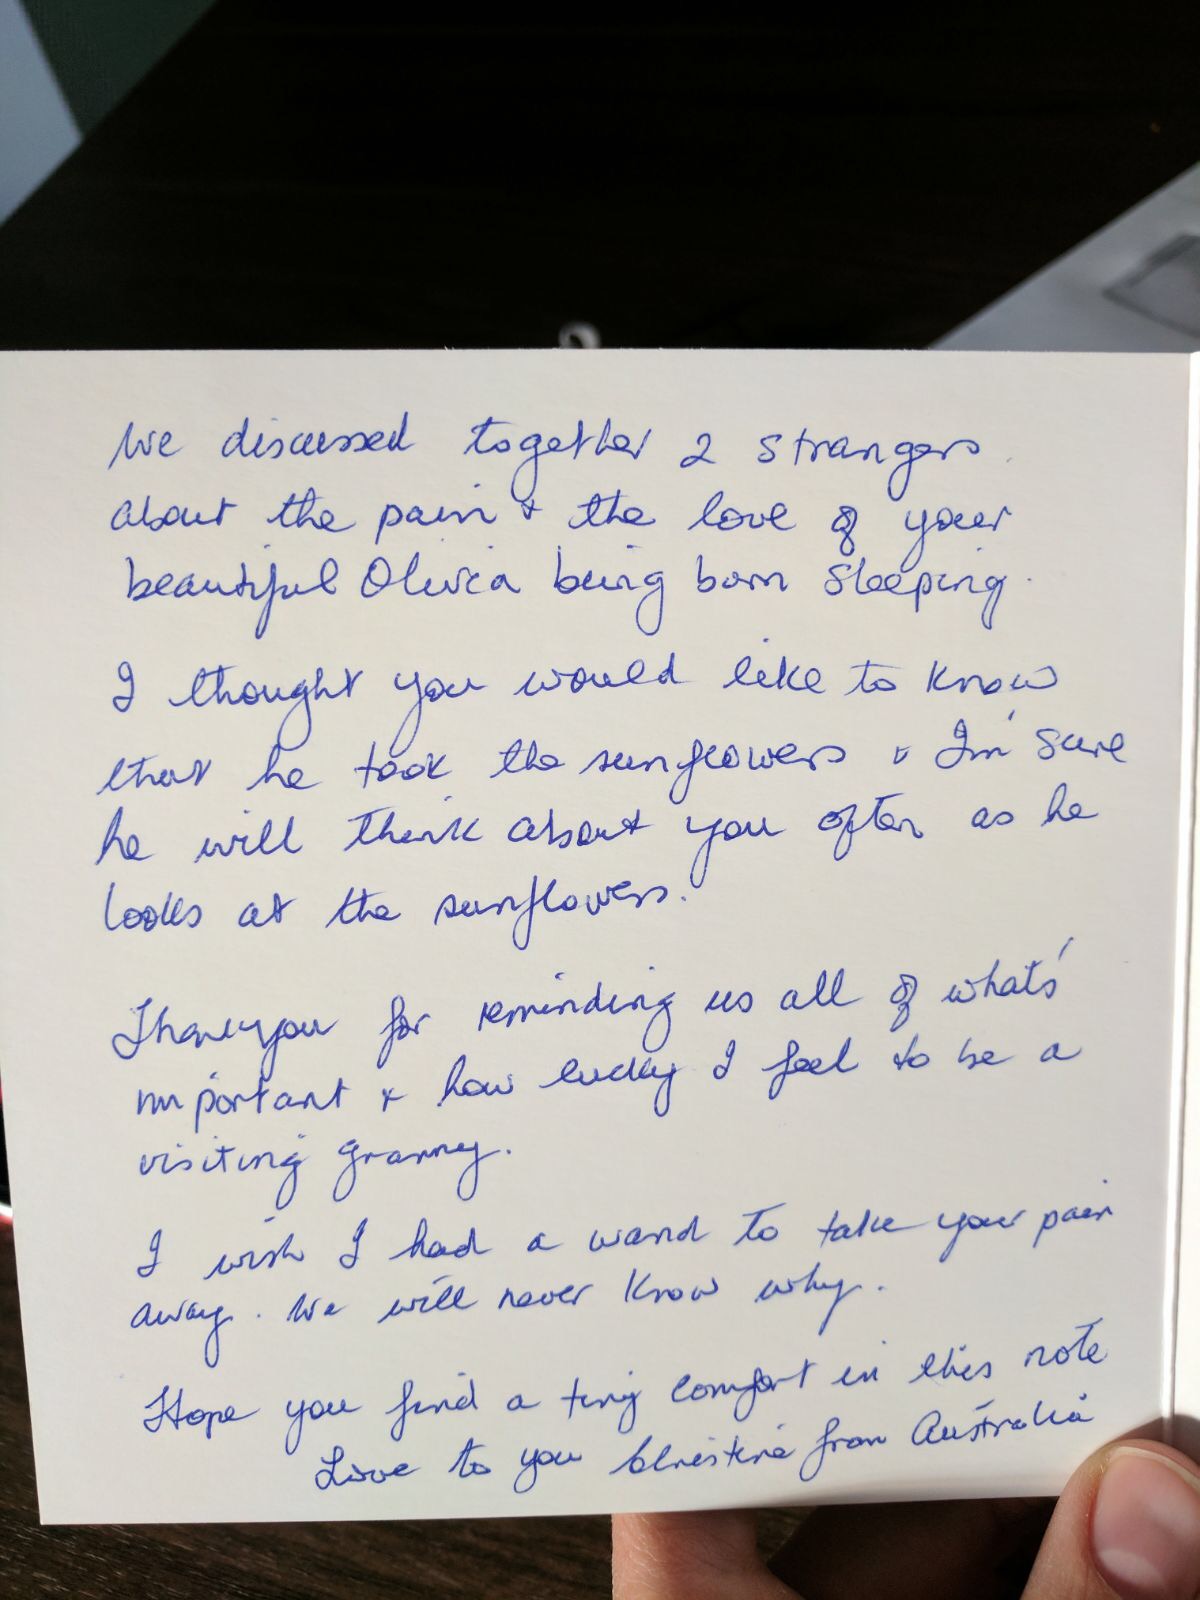 We discussed together 2 strangers
about the pain & the love of your
beautiful Olivia being born sleeping.
I thought you would like to know
that he took the sunflowers & I'm sure
he will think about you often as he
looks at the sunflowers.
Thankyou for reminding us all of what's
important & how lucky I feel to be a
visiting granny.
I wish I had a wand to take your pain
away. We will never know why.
Hope you find a tiny comfort in this note
Love to you Christine from Australia